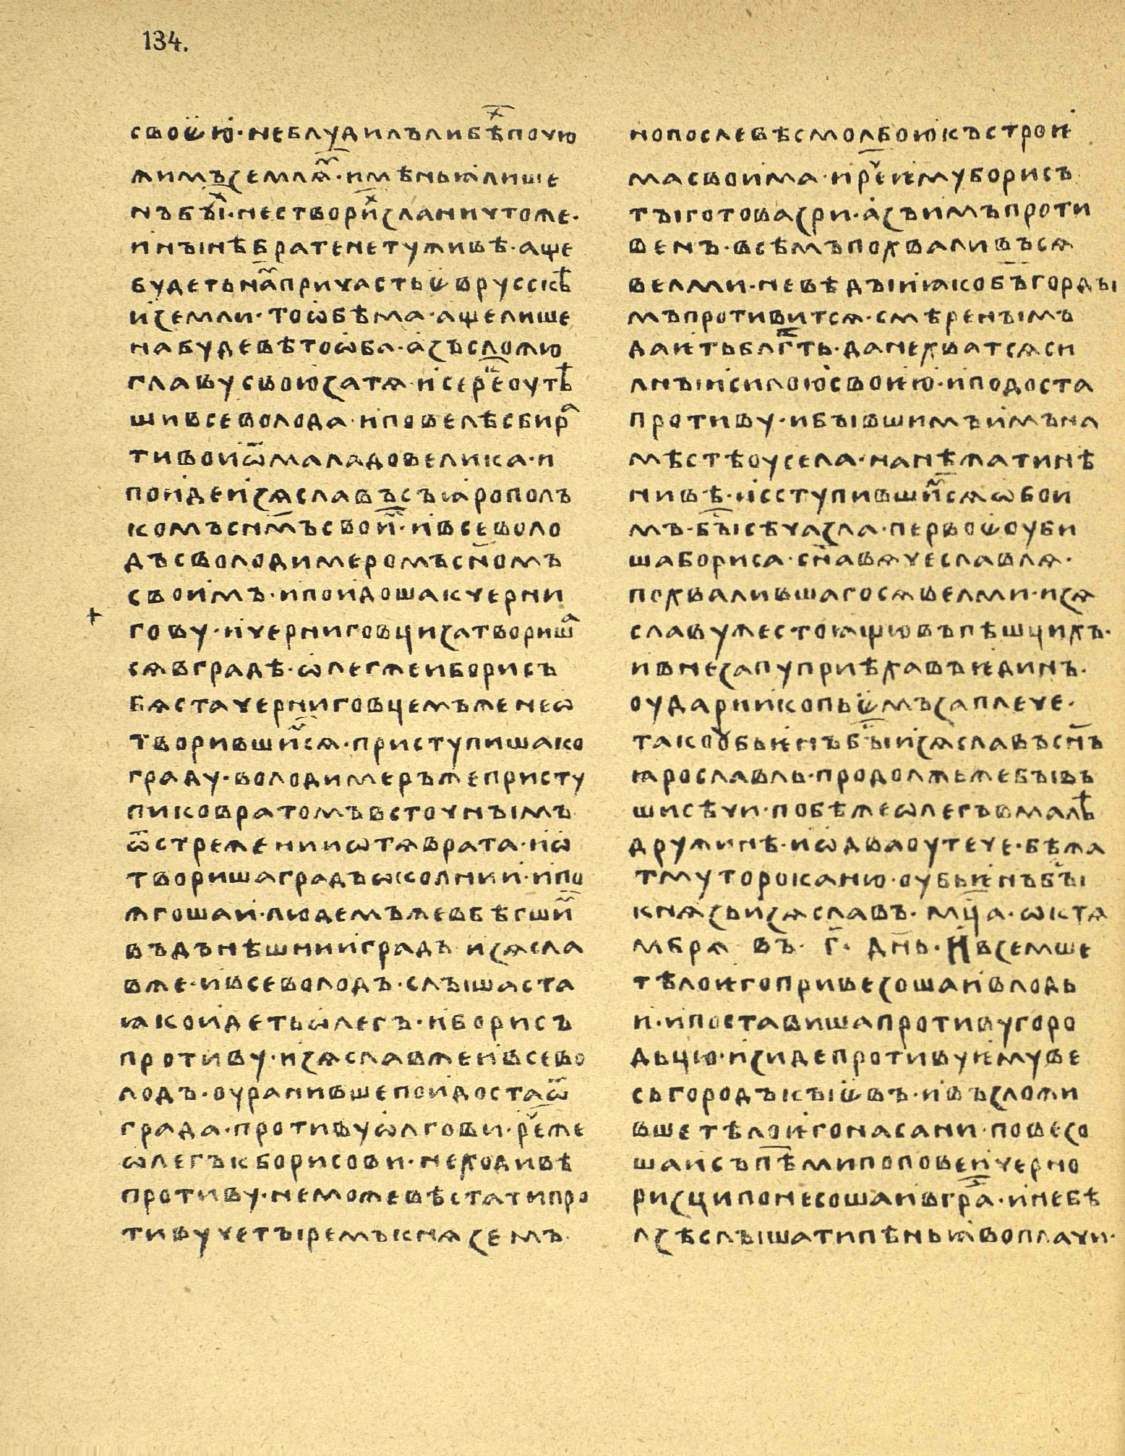 134.
своѥю · не блудилъ ли бѣхъ по чю
жимъ землѧмъ · имѣньꙗ лише
нъ бых · не створих зла ничтоже ·
и нынѣ брате не туживѣ · аще
будеть нам причастье в русскѣ
и земли · то ѡбѣма · аще лише
на будевѣ то ѡба · азъ сложю
главу свою за тѧ · и се рекъ оутѣ
ши всеволода · и повелѣ сбира
ти вои ѿ мала до велика · и
поиде изѧславъ съ ꙗропол
комъ сн҃мъ своим · и всеволо
дъ с володимеромъ сн҃омъ
своимъ · и поидоша к черни
гову · и черниговци затвориша
сѧ в градѣ · ѡлег же и борисъ
бѧста черниговцемъ же не ѿ
творившимсѧ · приступиша ко
граду · володимеръ же присту
пи ко вратом въсточнымъ
ѿ стрежени и ѿтѧ врата · и ѿ
твориша градъ ѡколнии · и по
жгоша и · людемъ же вбѣгшим
въ дънѣшнии градъ изѧсла
в же · и всеволодъ · слышаста
ꙗко идеть ѡлегъ · и борисъ
противу · изѧслав же и всево
лодъ · оуранивше поидоста ѿ
града · противу ѡлгови · рече же
ѡлегъ к борисови · не ходивѣ
противу · не можевѣ стати про
тиву четыремъ кнѧземъ
но послевѣ с молбою къ строи
ма своима · и рече ѥму борисъ
ты готова зри · азъ имъ проти
венъ · всѣмъ похваливъсѧ
велми · не вѣдыи ꙗко бъ гордꙑ
мъ противитсѧ · смѣренымъ
даѥть блг҃ть · да не хватсѧ си
лныи силою своѥю · и подоста
противу · и бывшимъ имъ на
мѣстѣ оу села · на нѣжатинѣ
нивѣ · и сступившимсѧ ѡбои
мъ · бы сѣча зла · первоѥ оуби
ша бориса · сн҃а вѧчеславлѧ ·
похваливша госѧ велми · изѧ
славу же стоꙗщю въ пѣшцихъ ·
и внезапу приѣхавъ ѥдинъ ·
оудари и копьѥмъ за плече ·
тако оубьѥнъ бы изѧславъ сн҃ъ
ꙗрославль · продолжьже бывъ
ши сѣчи · побѣже ѡлегъ в малѣ
дружинѣ · и ѡдва оутече · бѣжа
тмутороканю · оубьѥнъ бы
кнѧзь изѧславъ · мц҃а · ѡктѧ
мбрѧ въ · г҃ · дн҃ь · И вземше
тѣло ѥго привезоша и в лодь
и · и поставиша противу горо
дьцю · изиде противу ѥму ве
сь городъ кыѥвъ · и възложи
вше тѣло ѥго на сани · повезо
ша и съ пѣс҃ми попове и черно
ризци понесоша и в град · и не бѣ
лзѣ слышати пѣньꙗ во плачи ·